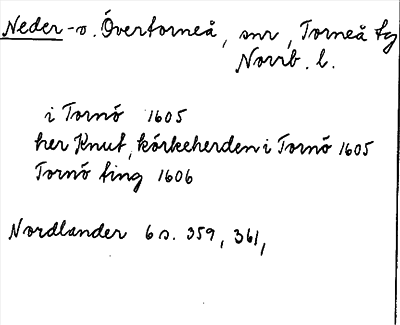 Neder-o. Övertorneå, snr, Torneå tg
Norrb. l.
i Tornö 1605
her Knut, körkeherden i Tornö 1605
Tornö ting 1606
Nordlander 6 s. 359, 361,